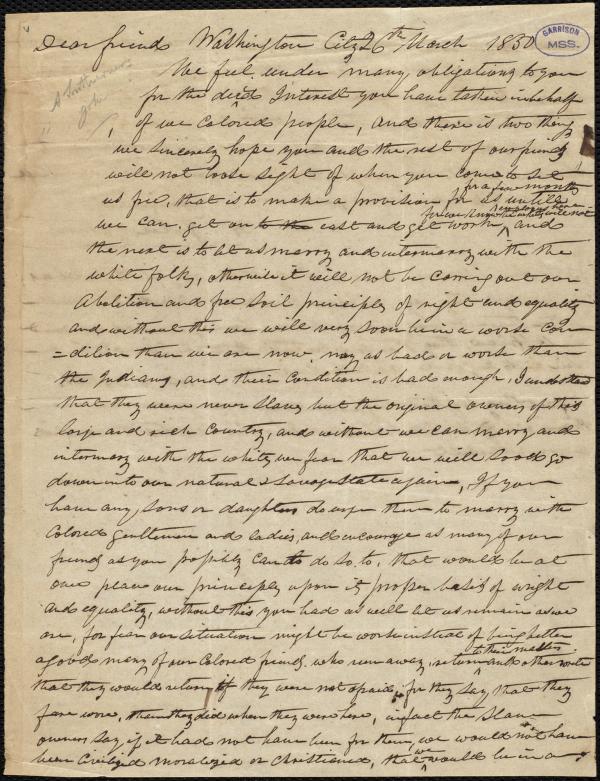 Dear friend Washington City 26th March 1850
GARRISON
MSS.
A Southerner's
joke
We feel under many obligations to you
for the deep Interest you have taken in behalf
of we Colored people, and there is two things
we sincerely hope you and the rest of our friends
will not loose sight of when you come to set
us free, that is to make a provision for us untill
for a few months
we can get on to the east and get work, and
for we know the whites will not
employ us here
the next is to let us marry and intermarry with the
white folks, otherwise it will not be carring out our
Abolition and free soil principles of right and equality
and without this we will very soon be in a worse con
=dition than we are now, nay as bad or worse than
the Indians, and their Condition is bad enough, I understand
that they were never Slaves but the original owners of this
large and rich Country, and without we can marry and
intermarry with the whites we fear that we will soon go
down into our natural & Savage State again, If you
have any sons or daughters do urge them to marry with
Colored gentlemen and ladies, and encourage as many of our
friends as you possibly can to do so to, that would be at
once place our principles upon its proper basis of wright
and equality, without this you had as well let us remain as we
are, for fear our situation might be worse instead of being better
a good many of our Colored friends, who run away, return and others write
to their masters
that they would return if they were not afraid, for they say, that they
fare worse, than they did when they were here, in fact the Slave
owners say if it had not have been for them, we would not have
been Civilized moralized or Christianed, that we would be in a